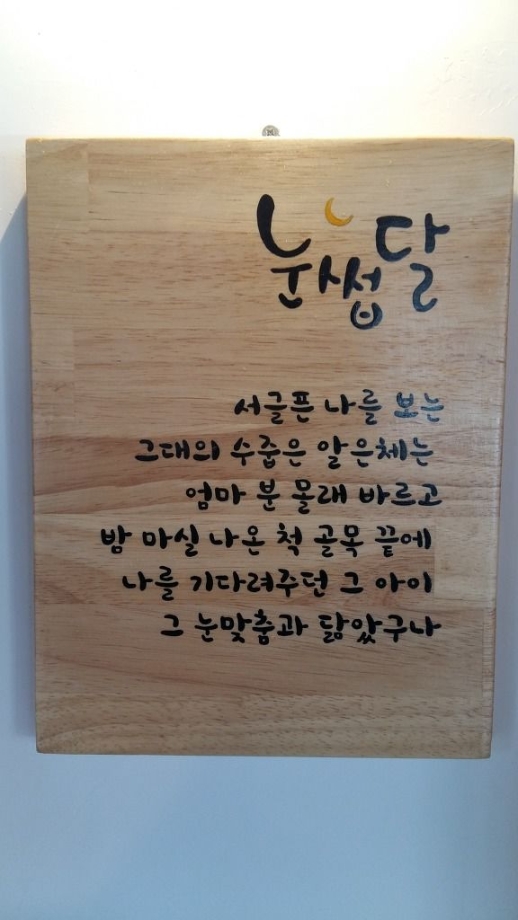 눈썹달
서글픈 나를 보는
그대의 수줍은 알은체는
엄마 분 몰래 바르고
밤 마실 나온 척 골목 끝에
나를 기다려주던 그 아이
그 눈맞춤과 닮았구나